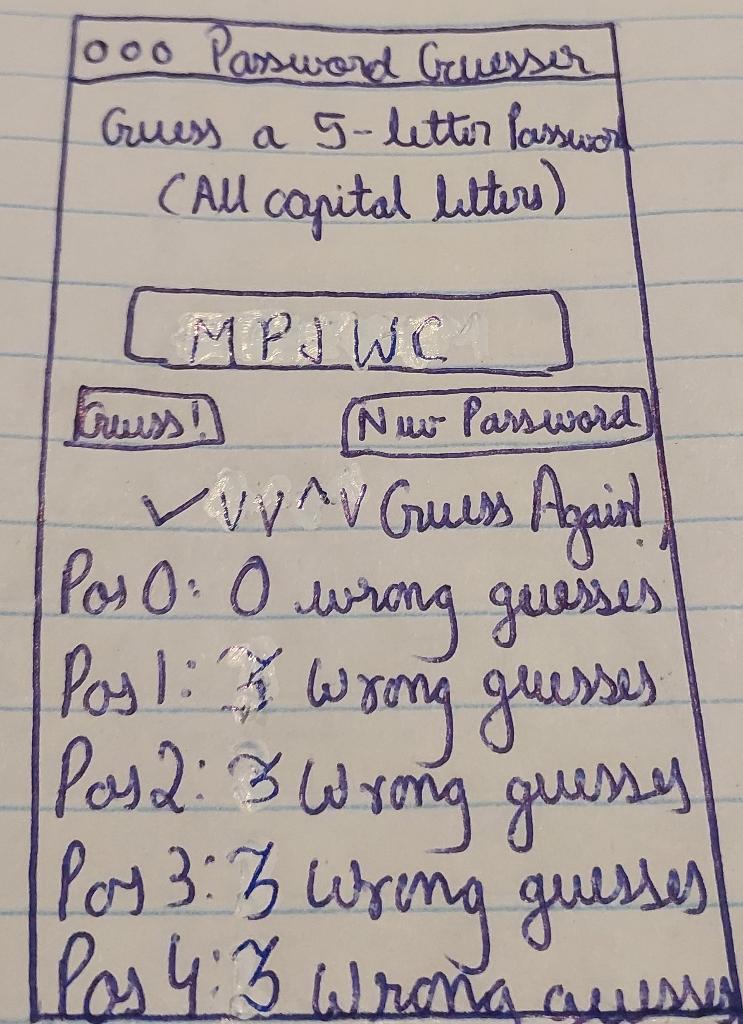 ooo Password Guesser
Guess a 5-letter Password
(All capital letters)
MPJWC
Guess! New Password
✓ V V ^ V Guess Again!
Pos 0: 0 wrong guesses
Pos 1: 3 wrong guesses
Pos 2: 3 wrong guesses
Pos 3: 3 wrong guesses
Pos 4: 3 wrong guesses